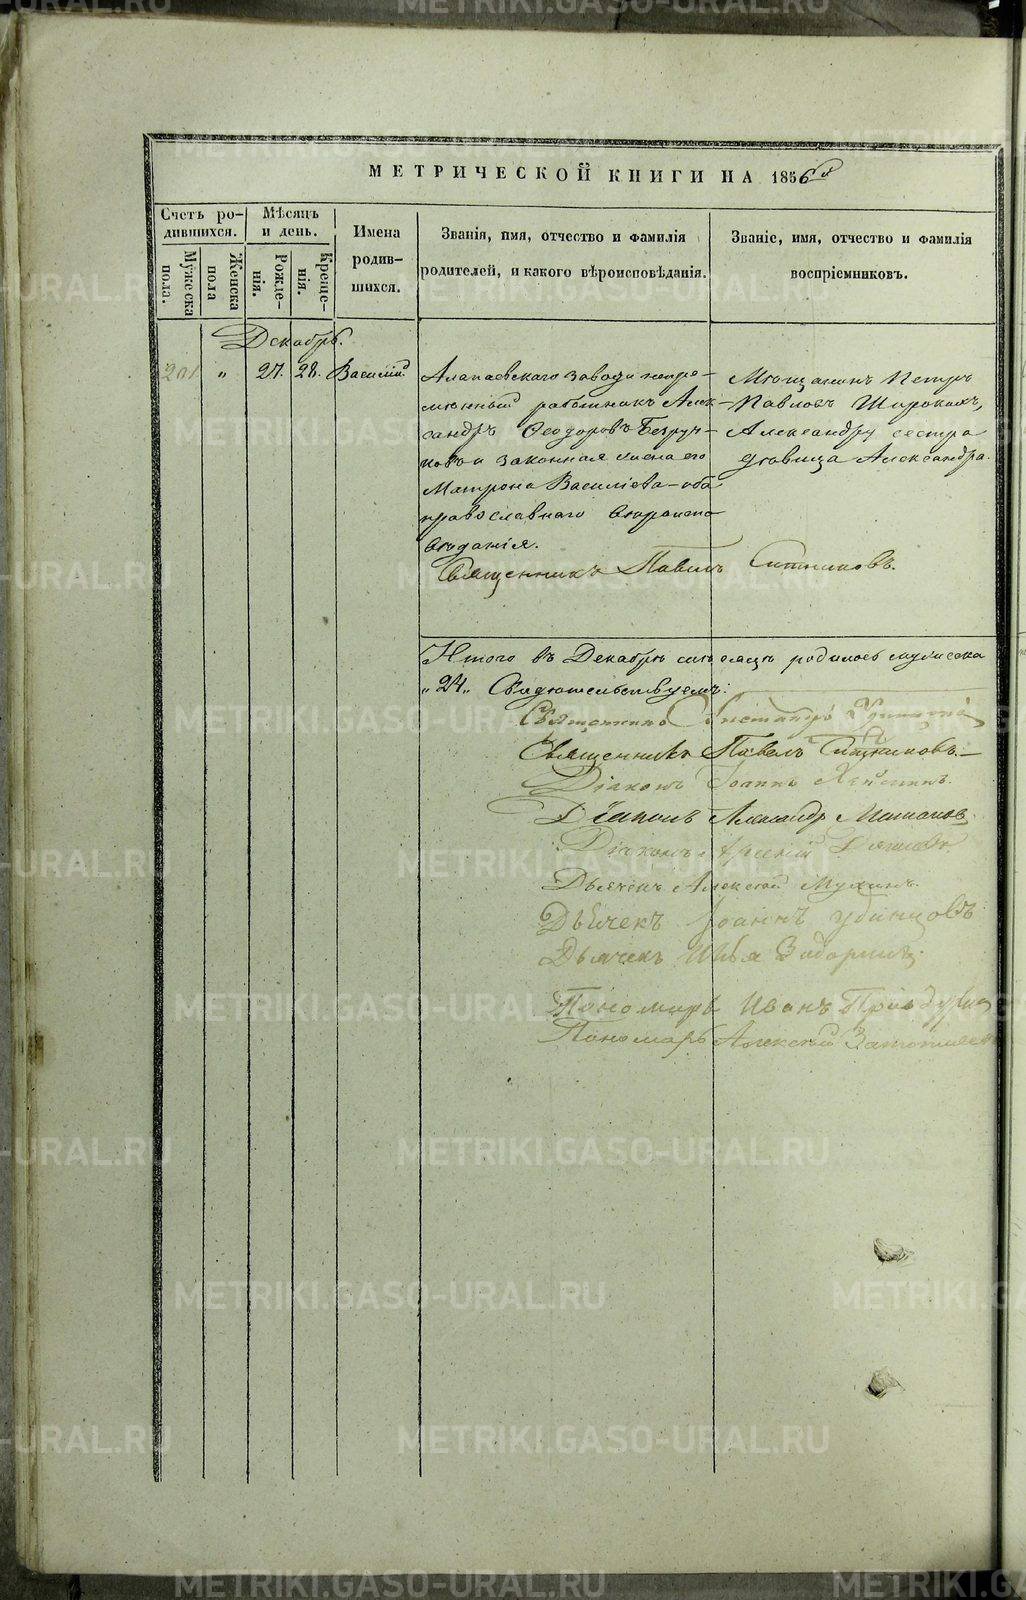 МЕТРИЧЕСКОЙ КНИГИ НА 1856й
Счетъ родившихся.
Мужеска пола.
Женска пола
Мѣсяцъ и день.
Рожденія.
Крещенія.
Имена родившихся.
Званія, имя, отчество и фамилія
родителей, и какого вѣроисповѣданія.
Званіе, имя, отчество и фамилія
воспріемниковъ.
Декабрь.
201 " 27. 28. Василій
Алапаевскаго завода непре-
мѣнный работникъ Алек-
сандръ Ѳеодоровъ
и законная жена его
Матрона Василіева - оба
православнаго вѣроиспо-
вѣданія.
Мѣщанинъ Петръ
Павловъ Широковъ,
Александру сестра
дѣвица Александра.
Священникъ Павелъ Ситниковъ.
Итого въ Декабрѣ мѣсяцѣ родилось мужеска
"24" Свидѣтельствуемъ:
Священникъ
Священникъ Павелъ Ситниковъ.
Діаконъ Іоаннъ
Діаконъ Александръ
Діаконъ Арсеній
Дьячекъ Алексѣй Мухинъ.
Дьячекъ Іоаннъ Удинцовъ
Дьячекъ Илья
Пономарь Иванъ
Пономарь Алексѣй
METRIKI.GASO-URAL.RU